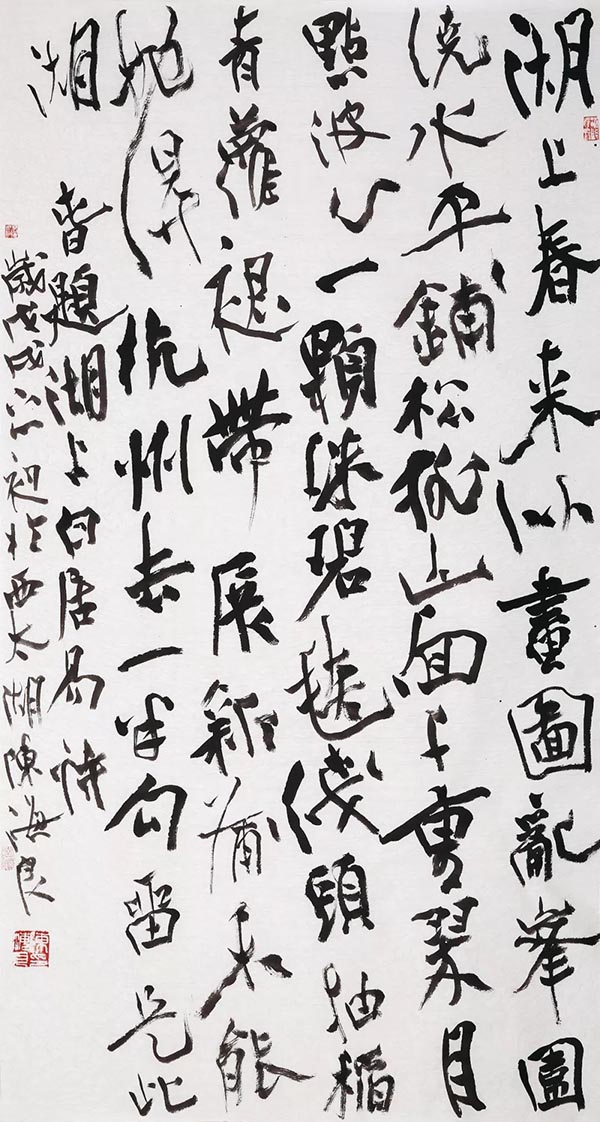 湖上春来似畫圖亂峯圍
繞水平鋪松排山面千重翠月
點波心一顆珠碧毯綫頭抽稻
青蘿裙帶展新蒲未能
抛得杭州去一半勾留是此
湖
春題湖上白居易詩
歲戊戌之初於西太湖陳海良